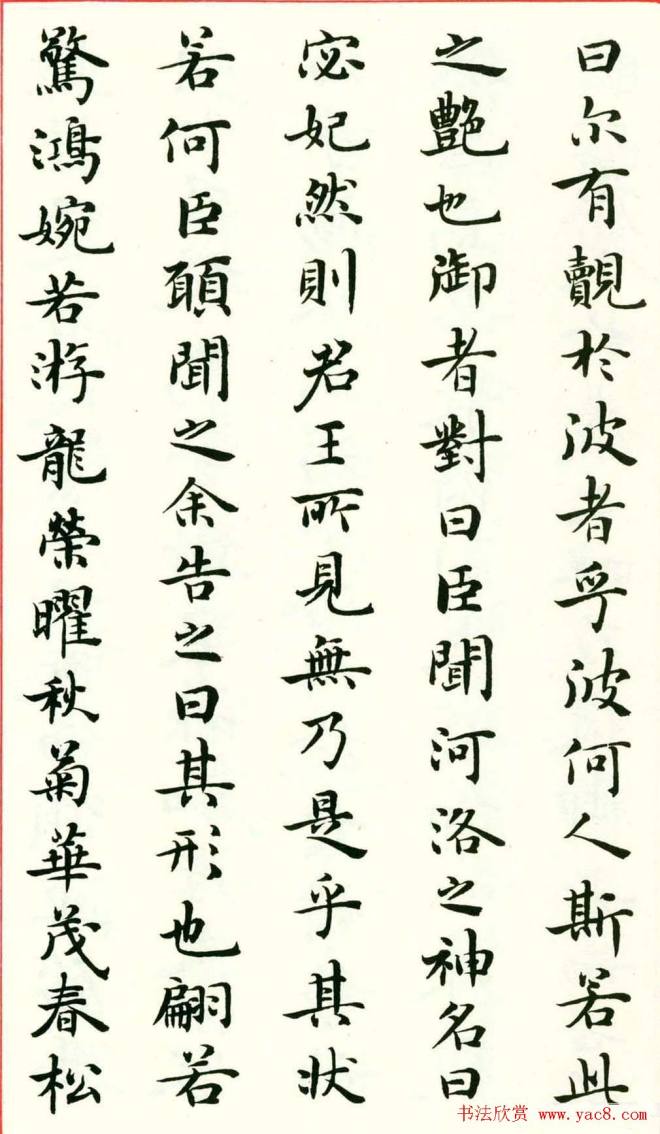 曰尔有觌於波者乎波何人斯若此
之艷也御者對曰臣聞河洛之神名曰
宓妃然則君王所見無乃是乎其状
若何臣頋聞之余告之曰其形也翩若
驚鴻婉若游龍榮曜秋菊華茂春松
书法欣赏 www.yac8.com